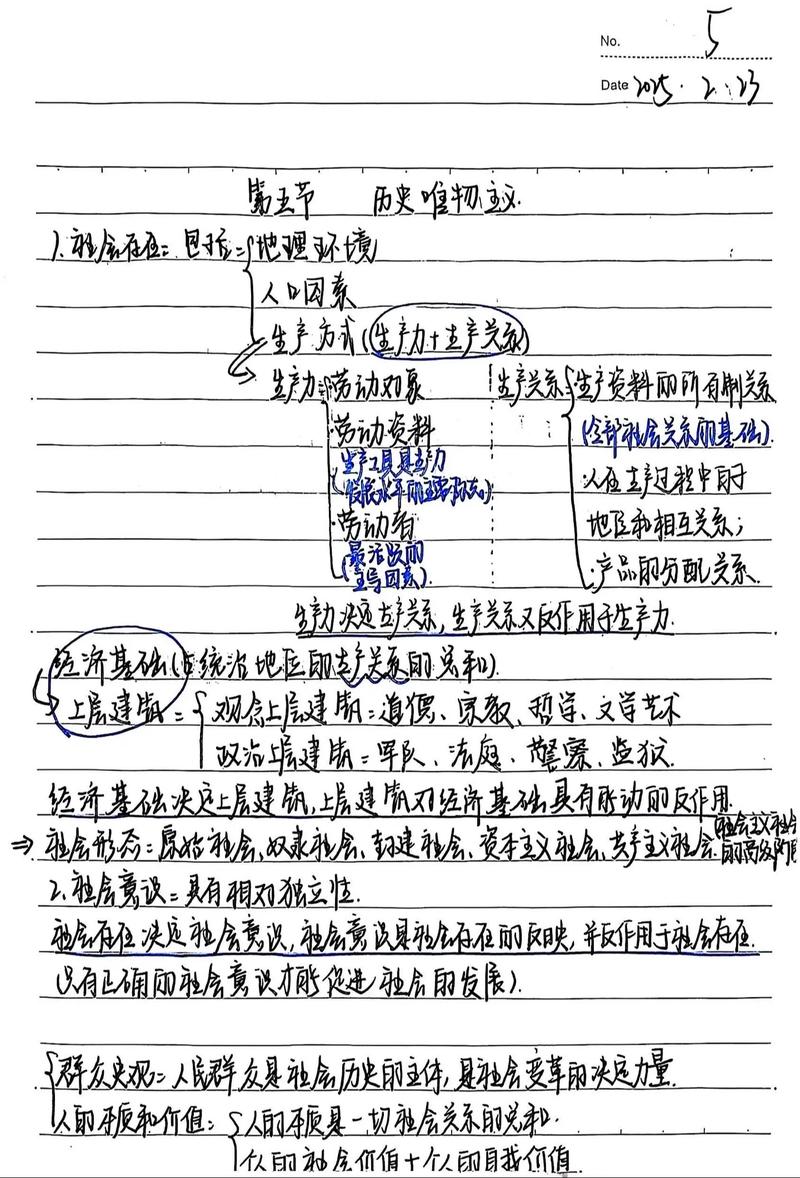 No. 5
Date 2025.2.23
第五节 历史唯物主义
1.社会存在:包括:地理环境
人口因素
生产方式(生产力+生产关系)
生产力:劳动对象
·劳动资料
(生产工具是生产力
发展水平的主要标志)
·劳动者
(最活跃的
主导因素).
生产关系:生产资料的所有制关系
(全部社会关系的基础).
·人在生产过程中的
地位和相互关系;
·产品的分配关系.
生产力决定生产关系,生产关系又反作用于生产力.
经济基础(占统治地位的生产关系的总和).
上层建筑:观念上层建筑:道德、宗教、哲学、文学艺术
政治上层建筑:军队、法庭、警察、监狱.
经济基础决定上层建筑,上层建筑对经济基础具有能动的反作用.
⇒社会形态:原始社会、奴隶社会、封建社会、资本主义社会、共产主义社会.
社会主义社会
的高级阶段
2.社会意识:具有相对独立性.
社会存在决定社会意识,社会意识是社会存在的反映,并反作用于社会存在.
(只有正确的社会意识才能促进社会的发展).
群众史观:人民群众是社会历史的主体,是社会变革的决定力量.
人的本质和价值:人的本质是一切社会关系的总和.
个人的社会价值+个人的自我价值.